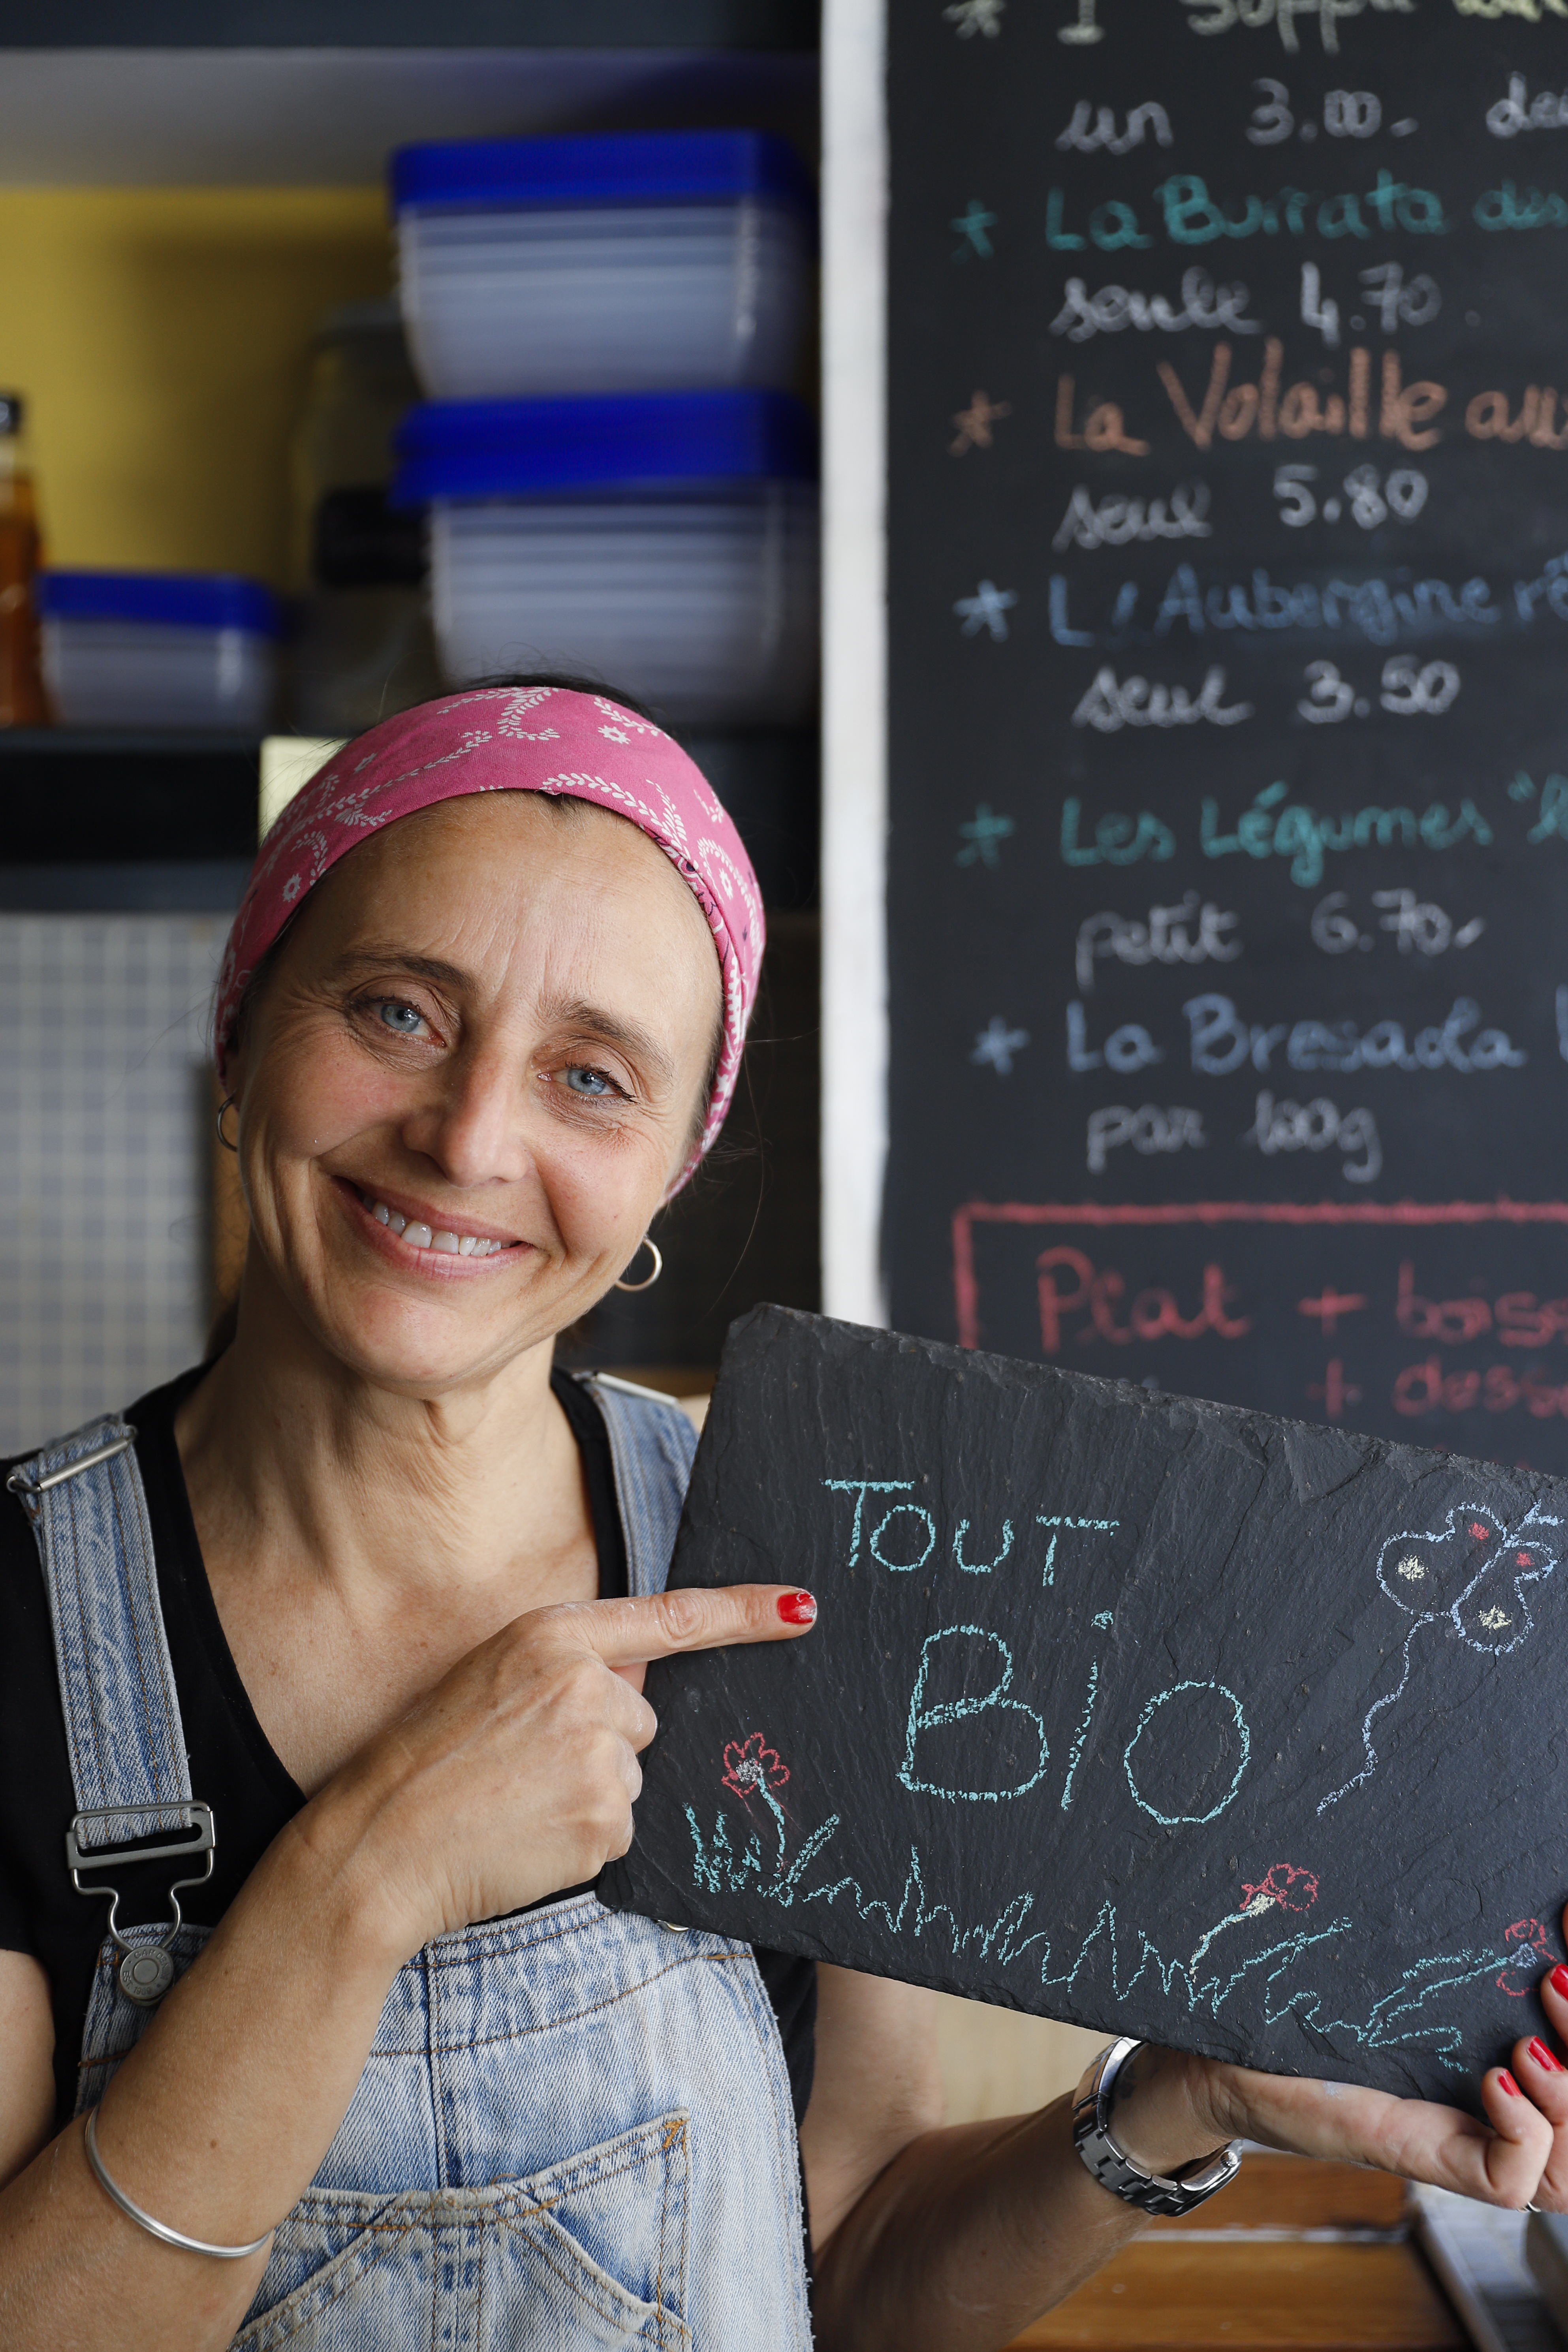 1 Suppl
un 3.00.-
La Burrata des
seule 4.70.
La Volaille au
seul 5.80
L'Aubergine
seul 3.50
Les Légumes "
petit 6.70.-
La Bresaola
par 100g
Plat +
+
TOUT
Bio